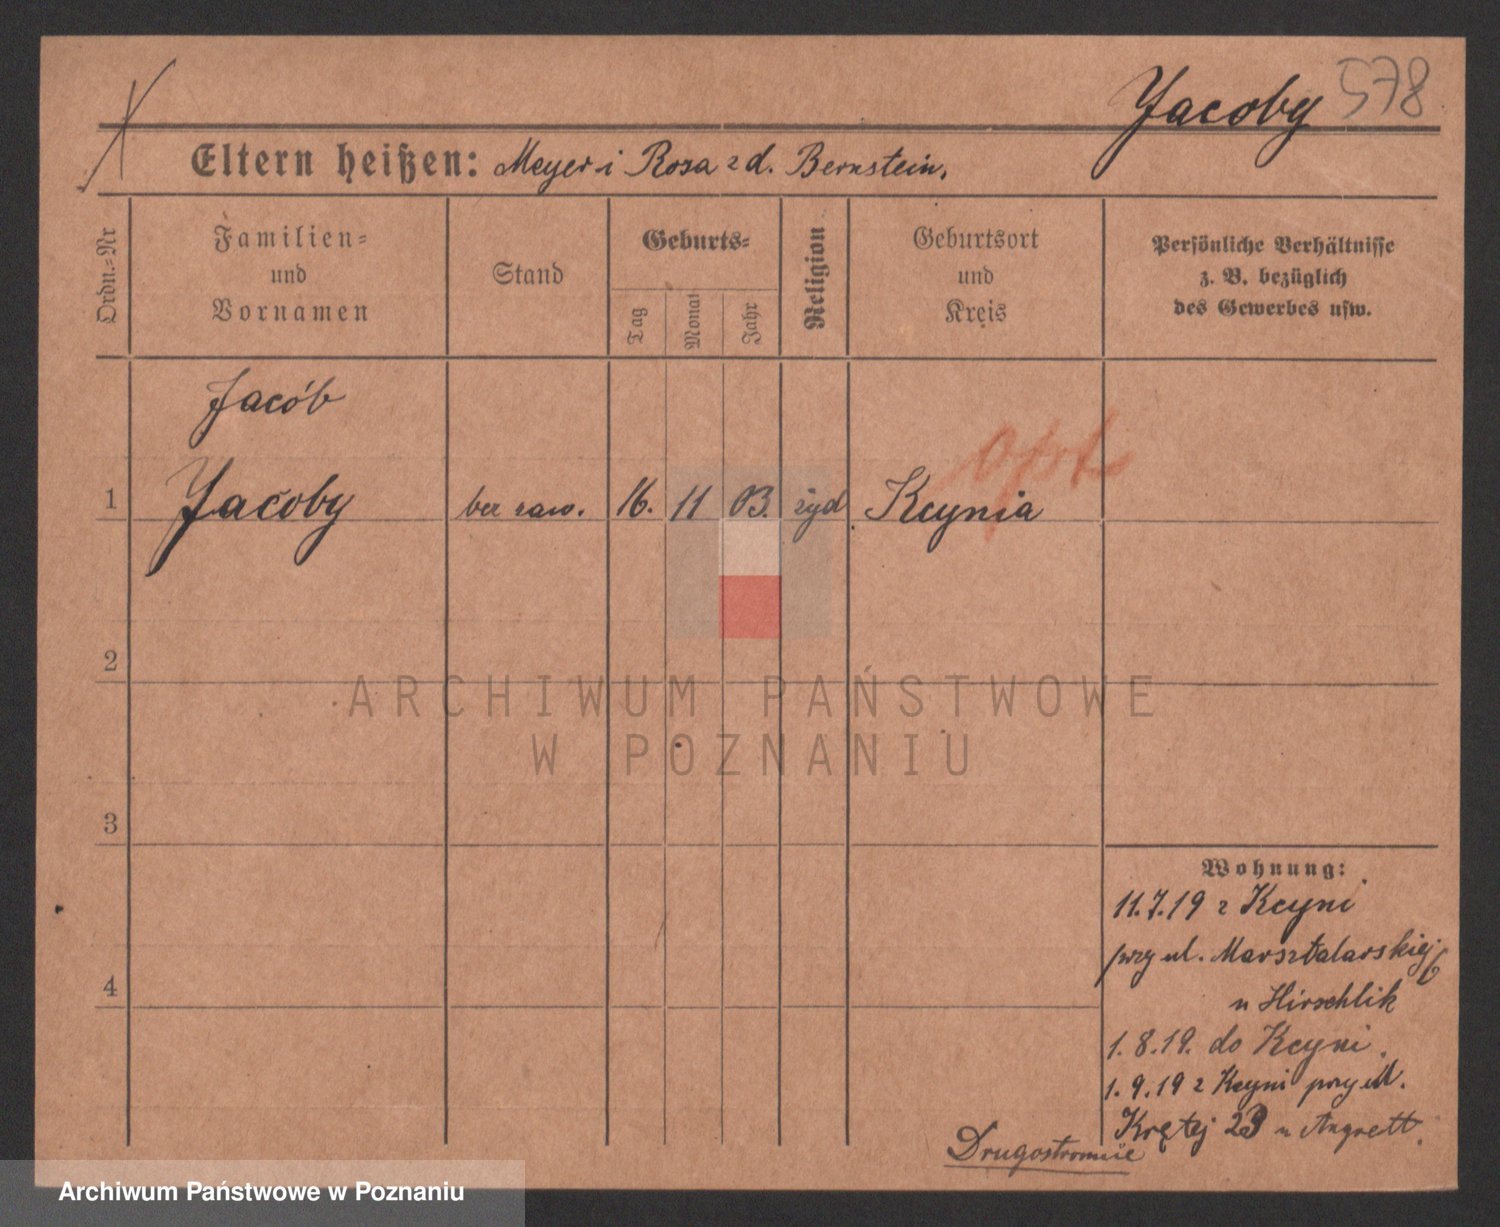 Jacoby 578
Eltern heißen: Meyer i Rosa z d. Bernstein.
Ordn.-Nr
Familien- und Vornamen
Stand
Geburts-
Tag
Monat
Jahr
Religion
Geburtsort und Kreis
Persönliche Verhältnisse
z. B. bezüglich
des Gewerbes usw.
Jacób
opt
1 Jacoby bez zaw. 16. 11 03. żyd Kcynia
2
ARCHIWUM PAŃSTWOWE
W POZNANIU
3
Wohnung:
11.7.19 z Kcyni
przy ul. Marsztalarskiej 6
4
u Hirschlik
1.8.19. do Kcyni.
1.9.19 z Kcyni przy ul.
Krętej 23 u
Drugostronnie
Archiwum Państwowe w Poznaniu